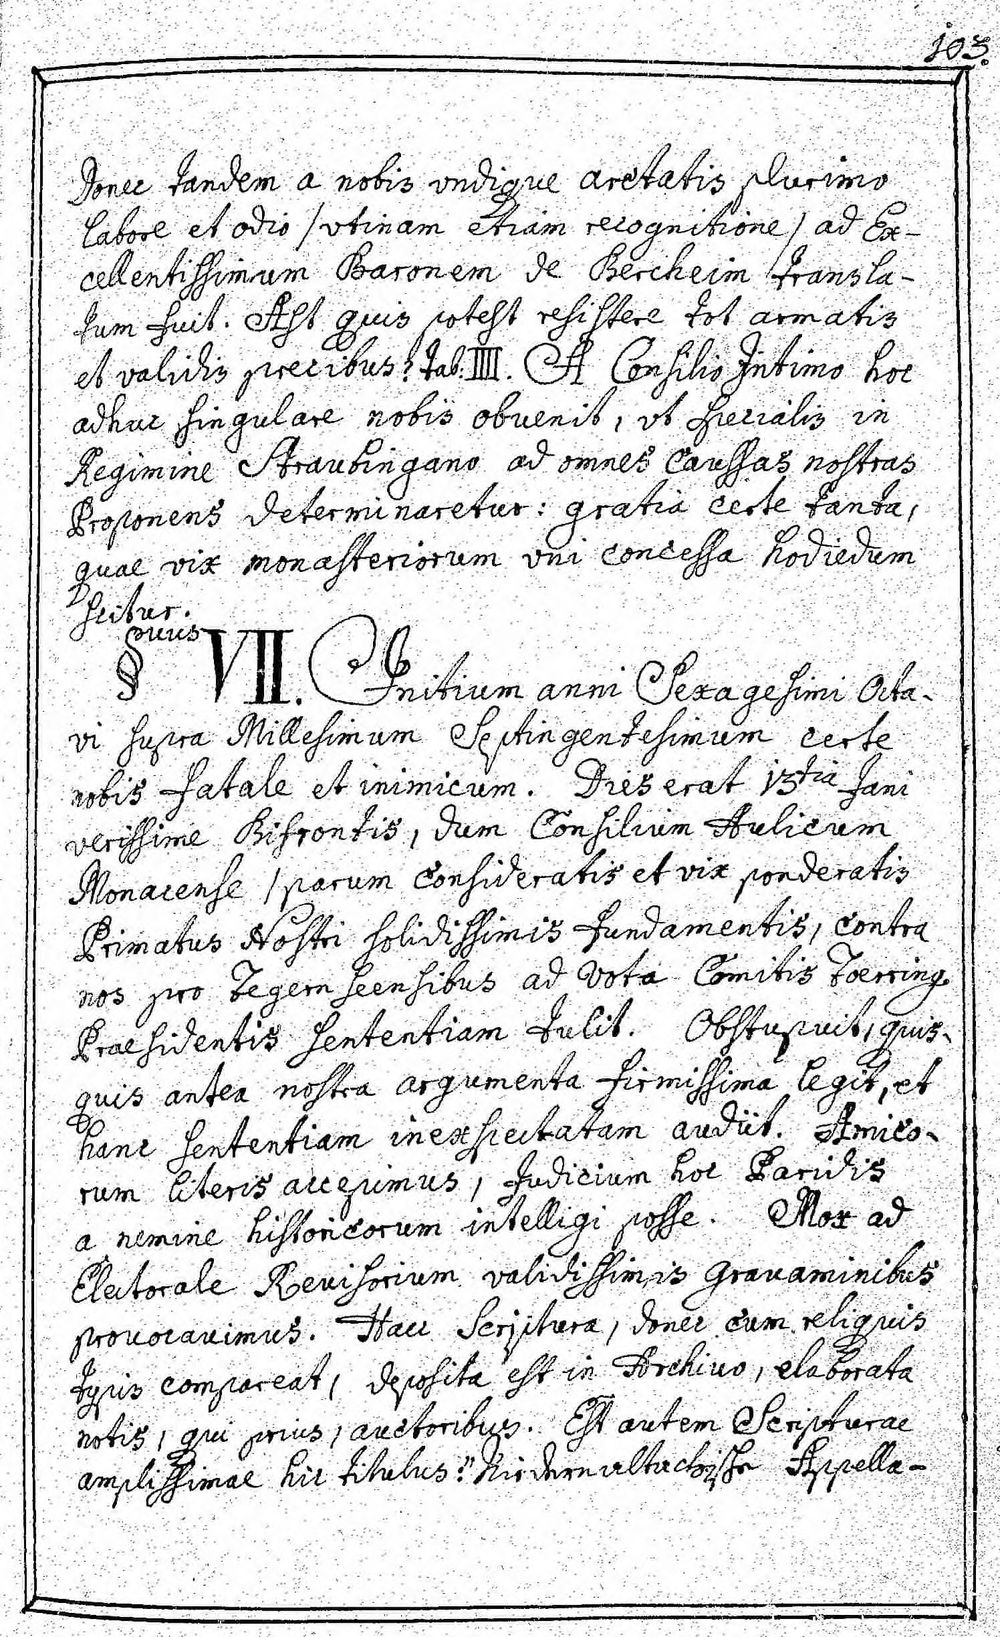 103.
Donec tandem a nobis vndique arctatis plurimo
labore et odio /vtinam etiam recognitione/ ad Ex-
cellentissimum Baronem de Bercheim transla-
tum fuit. Ast quis potest resistere tot armatis
et validis precibus? tab: IIII. A Consilio Intimo hoc
adhuc singulare nobis obuenit, vt specialis in
Regimine Straubingano ad omnes Caussas nostras
Proponens determinaretur: gratia certe tanta,
quae vix monasteriorum vni concessa hodiedum
scitur.
§ phus VII. Initium anni Sexagesimi Octa-
vi supra Millesimum Septingentesimum certe
nobis fatale et inimicum. Dies erat 13tia Jani
verissime Bifrontis, dum Consilium Aulicum
Monacense /parum Consideratis et vix ponderatis
Primatus Nostri solidissimis fundamentis, contra
nos pro Tegernseensibus ad Vota Comitis Toerring.
Praesidentis sententiam tulit. Obstupuit, quis-
quis antea nostra argumenta firmissima legit, et
hanc sententiam inexspectatam audiit. Amico-
rum literis accepimus, Judicium hoc Paridis
a nemine historicorum intelligi posse. Mox ad
Electorale Reuisorium validissimis Grauaminibus
prouocauimus. Haec Scriptura, donec cum reliquis
typis compareat, deposita est in Archiuo, elaborata
notis, qui prius, auctoribus. Est autem Scripturae
amplissimae hic titulus: "Niedernaltachische Appella-